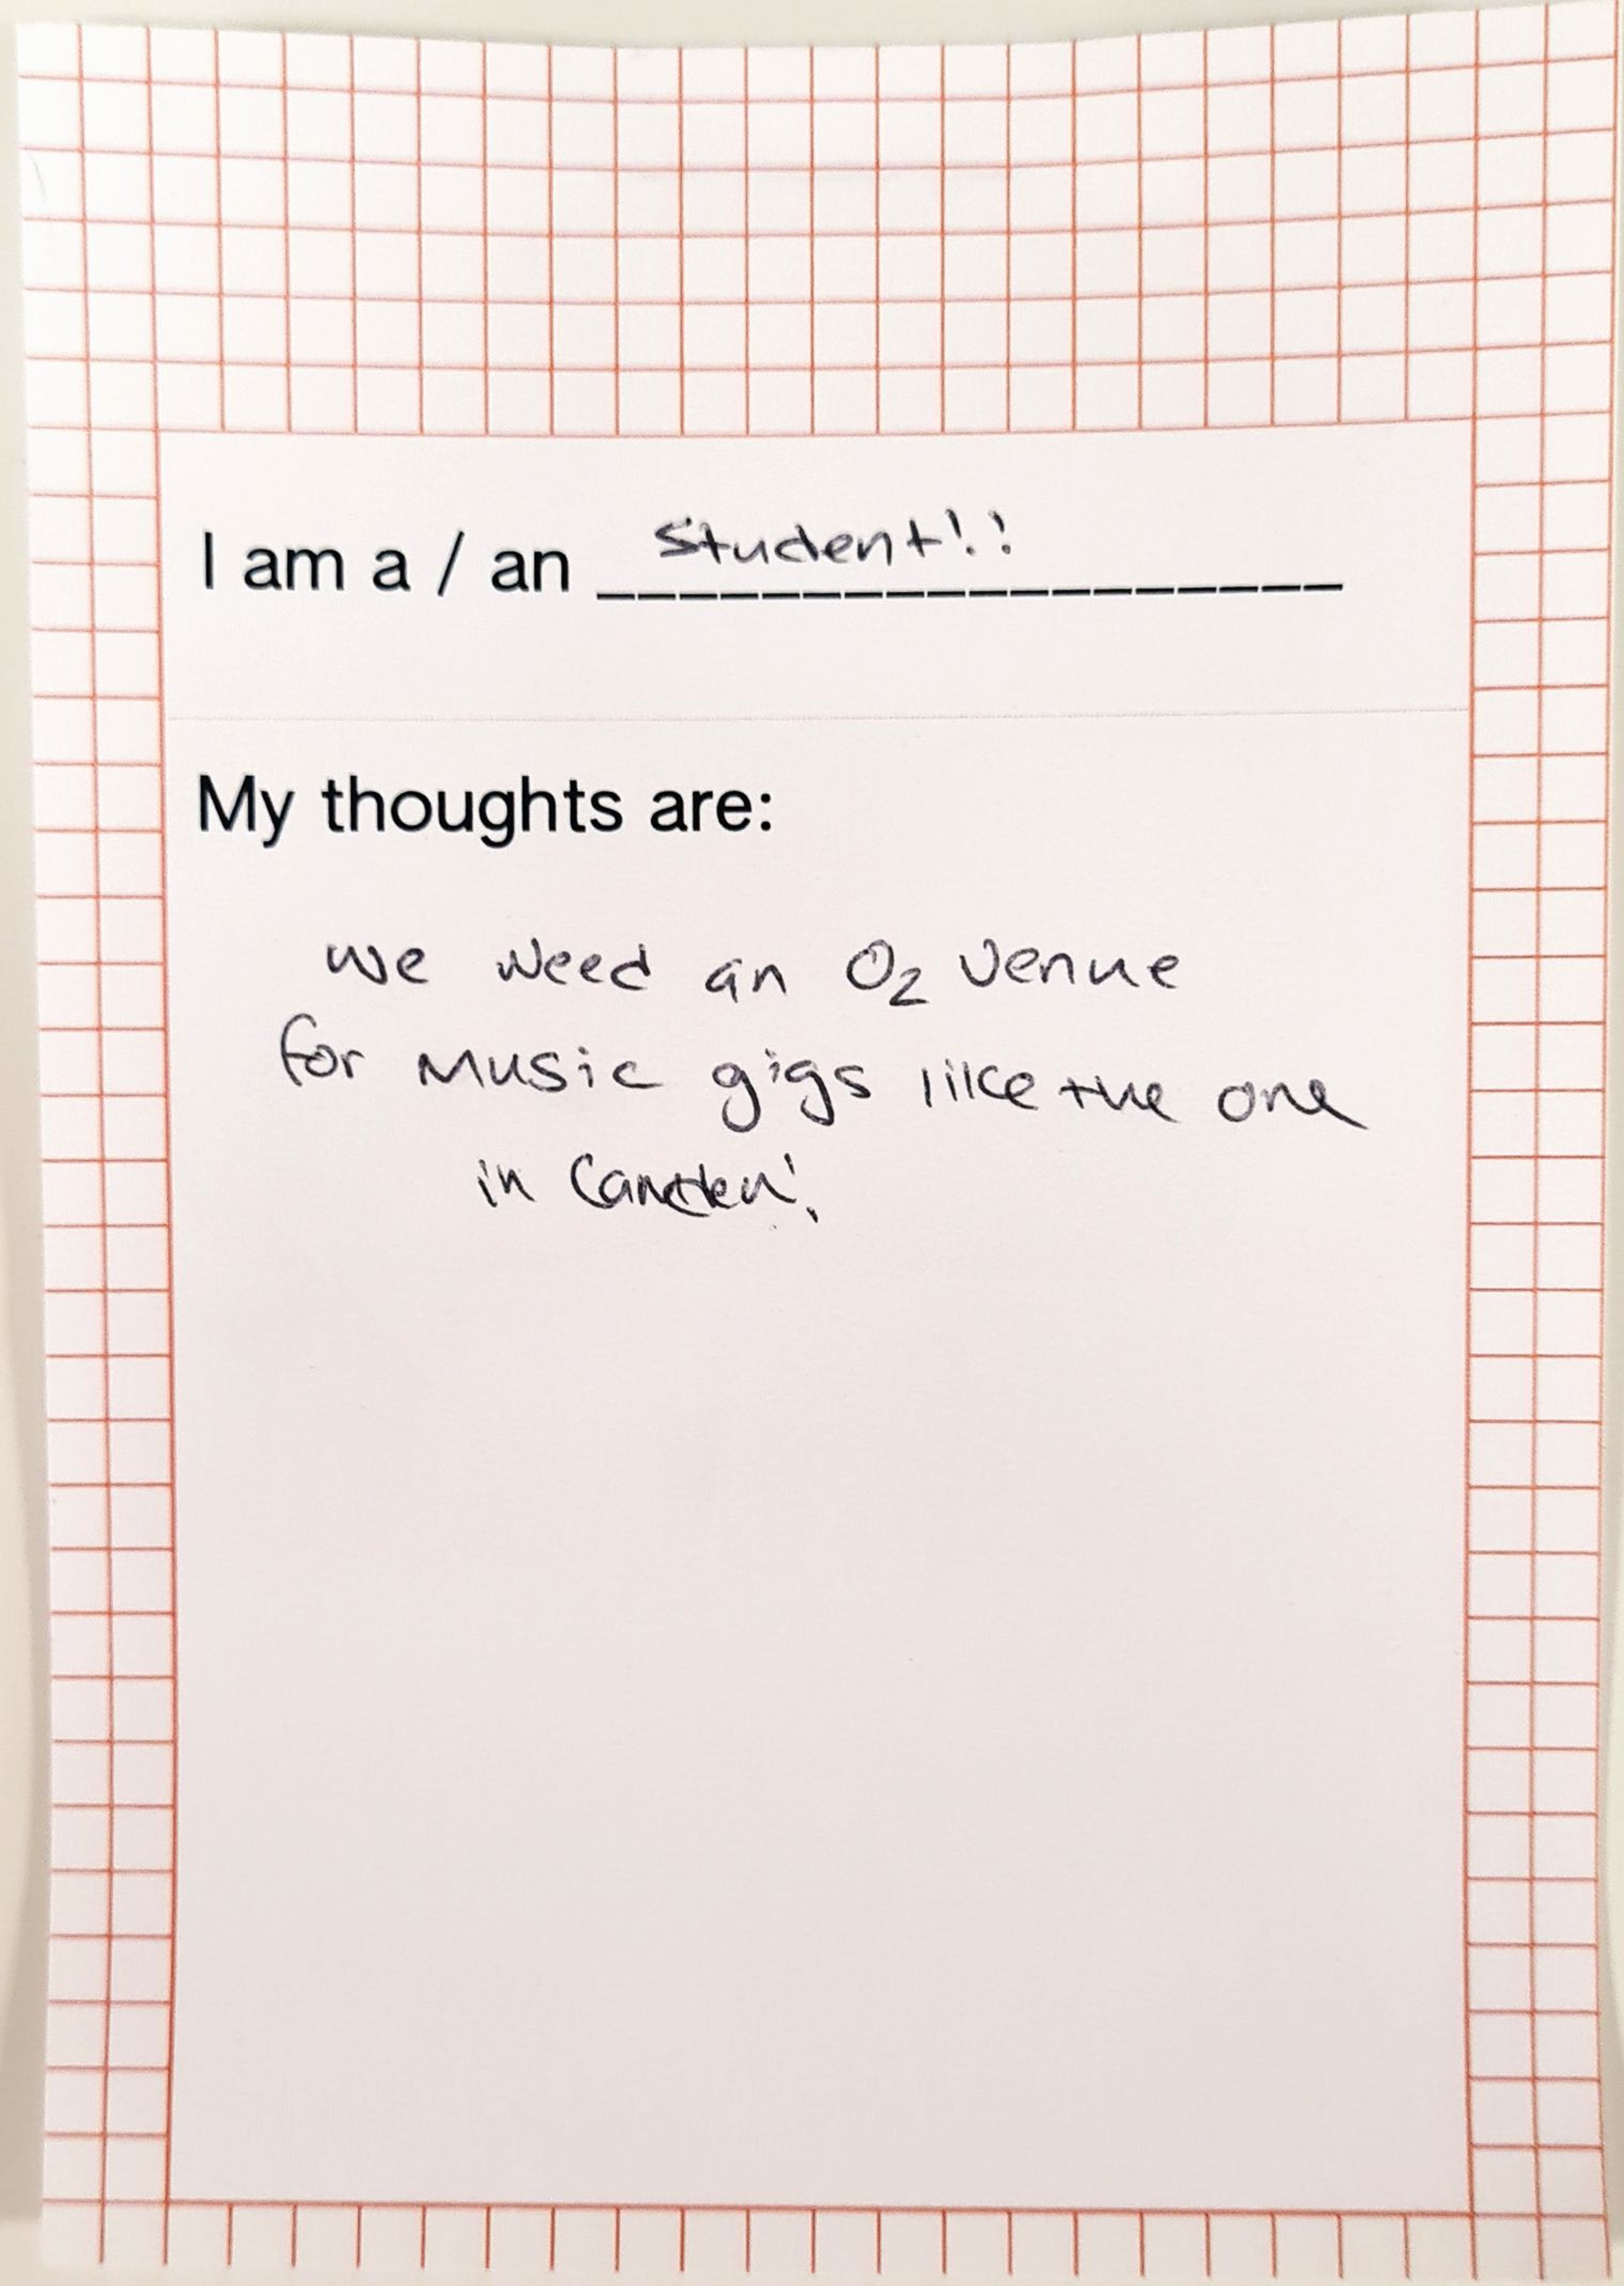 I am a / an Student!!
My thoughts are:
we need an O2 venue
for music gigs like the one
in Camden!